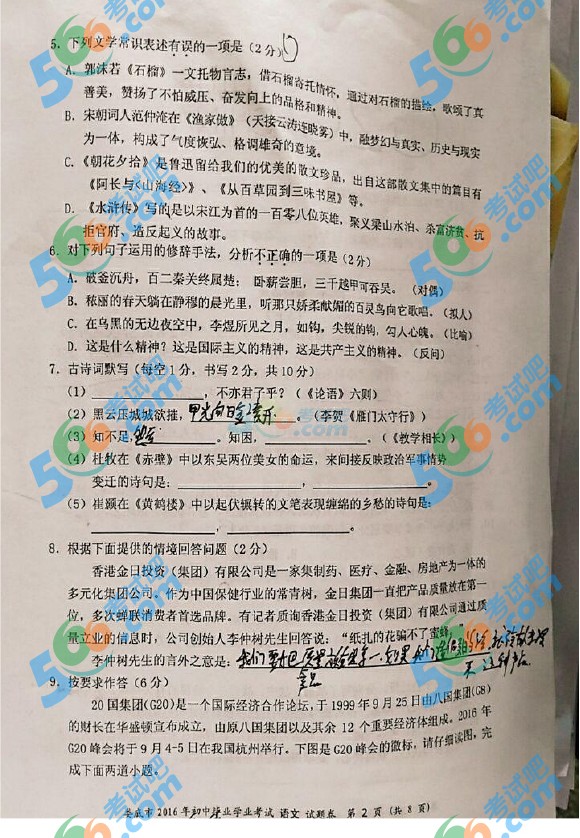 5. 下列文学常识表述有误的一项是（2分）
A. 郭沫若《石榴》一文托物言志，借石榴寄托情怀，通过对石榴的描绘，歌颂了真
善美，赞扬了不怕威压、奋发向上的品格和精神。
B. 宋朝词人范仲淹在《渔家傲》（天接云涛连晓雾）中，融梦幻与真实、历史与现实
为一体，构成了气度恢弘、格调雄奇的意境。
C. 《朝花夕拾》是鲁迅留给我们的优美的散文珍品，出自这部散文集中的篇目有
《阿长与<山海经>》、《从百草园到三味书屋》等。
D. 《水浒传》写的是以宋江为首的一百零八位英雄，聚义梁山水泊、杀富济贫、抗
拒官府、造反起义的故事。
6. 对下列句子运用的修辞手法，分析不正确的一项是（2分）
A. 破釜沉舟，百二秦关终属楚； 卧薪尝胆，三千越甲可吞吴。（对偶）
B. 秾丽的春天躺在静穆的晨光里，听那只娇柔献媚的百灵鸟向它歌唱。（拟人）
C. 在乌黑的无边夜空中，李煜所见之月，如钩，尖锐的钩，勾人心魄。（比喻）
D. 这是什么精神？这是国际主义的精神，这是共产主义的精神。（反问）
7. 古诗词默写（每空1分，书写2分，共10分）
（1）____________，不亦君子乎？（《论语》六则）
（2）黑云压城城欲摧，甲光向日金鳞开 （李贺《雁门太守行》）
（3）知不足，____________。知困，____________。（《教学相长》）
（4）杜牧在《赤壁》中以东吴两位美女的命运，来间接反映政治军事情势
变迁的诗句是：____________，____________。
（5）崔颢在《黄鹤楼》中以起伏辗转的文笔表现缠绵的乡愁的诗句是：
____________，____________。
8. 根据下面提供的情境回答问题（2分）
香港金日投资（集团）有限公司是一家集制药、医疗、金融、房地产为一体的
多元化集团公司。作为中国保健行业的常青树，金日集团一直把产品质量放在第一
位，多次蝉联消费者首选品牌。有记者质询香港金日投资（集团）有限公司通过质
量立业的信息时，公司创始人李仲树先生回答说：“纸扎的花骗不了蜜蜂
李仲树先生的言外之意是：我们要把质量
9. 按要求作答（6分）
20国集团(G20)是一个国际经济合作论坛，于1999年9月25日由八国集团(G8)
的财长在华盛顿宣布成立，由原八国集团以及其余12个重要经济体组成。2016年
G20峰会将于9月4-5日在我国杭州举行。下图是G20峰会的徽标，请仔细读图，完
成下面两道小题。
娄底市2016年初中毕业学业考试 语文 试题卷 第2页（共8页）
566考试吧
.com